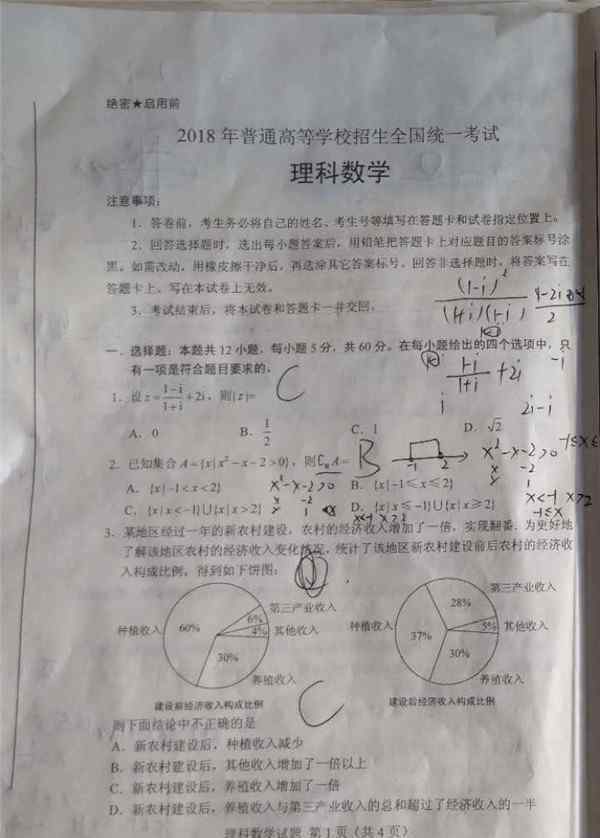 绝密★启用前
2018 年普通高等学校招生全国统一考试
理科数学
注意事项:
1. 答卷前,考生务必将自己的姓名、考生号等填写在答题卡和试卷指定位置上。
2. 回答选择题时,选出每小题答案后,用铅笔把答题卡上对应题目的答案标号涂
黑。如需改动,用橡皮擦干净后,再选涂其它答案标号。回答非选择题时,将答案写在
答题卡上。写在本试卷上无效。
3. 考试结束后,将本试卷和答题卡一并交回。
(1-i)²
(1+i)(1-i)
一、选择题:本题共 12 小题,每小题 5 分,共 60 分。在每小题给出的四个选项中,只
有一项是符合题目要求的。
C
1-i/1+i + 2i
-i
i 2i-i
1. 设 z=(1-i)/(1+i)+2i,则|z|=
A. 0 B. 1/2 C. 1 D. √2
2. 已知集合 A={x|x²-x-2>0},则∁ᵣA=
B
-1 2
x²-x-2>0
x -2
x 1
A. {x|-1<x<2} B. {x|-1≤x≤2}
x²-x-2>0
x -2
x 1
C. {x|x<-1}∪{x|x>2} D. {x|x≤-1}∪{x|x≥2}
x<-1 x>2
-1≤x
x<-1 x>2
3. 某地区经过一年的新农村建设,农村的经济收入增加了一倍,实现翻番.为更好地
了解该地区农村的经济收入变化情况,统计了该地区新农村建设前后农村的经济收
入构成比例,得到如下饼图:
种植收入 60% 6% 第三产业收入
4% 其他收入
30% 养殖收入
建设前经济收入构成比例
种植收入 37% 28% 第三产业收入
5% 其他收入
30% 养殖收入
建设后经济收入构成比例
C
则下面结论中不正确的是
A. 新农村建设后,种植收入减少
B. 新农村建设后,其他收入增加了一倍以上
C. 新农村建设后,养殖收入增加了一倍
D. 新农村建设后,养殖收入与第三产业收入的总和超过了经济收入的一半
理科数学试题 第 1 页(共 4 页)